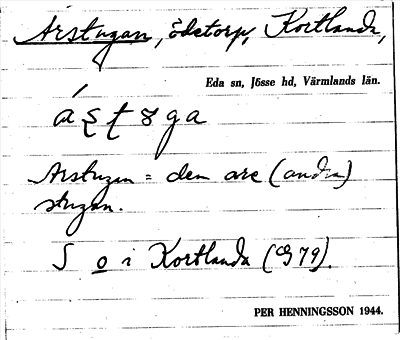 Arstugan, ödetorp, Kortlanda,
Eda sn, Jösse hd, Värmlands län.
Arstugan = den are (andra)
stugan.
S o i Kortlanda (CG 79).
PER HENNINGSSON 1944.